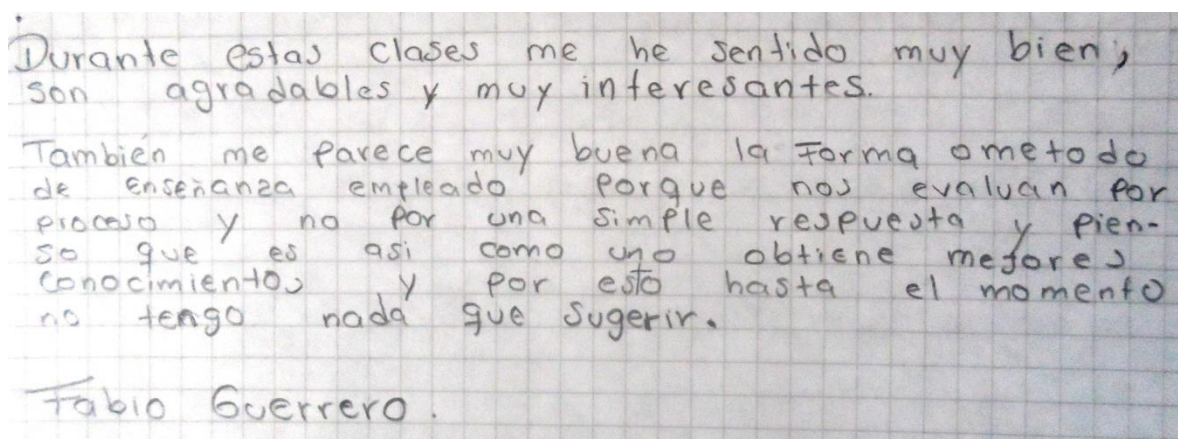 Durante estas clases me he sentido muy bien,
son agradables y muy interesantes.
También me parece muy buena la Forma o metodo
de enseñanza empleado porque nos evaluan por
proceso y no por una simple respuesta y pien-
so que es asi como uno obtiene mejores
conocimientos y por esto hasta el momento
no tengo nada que sugerir.
Fabio Guerrero.